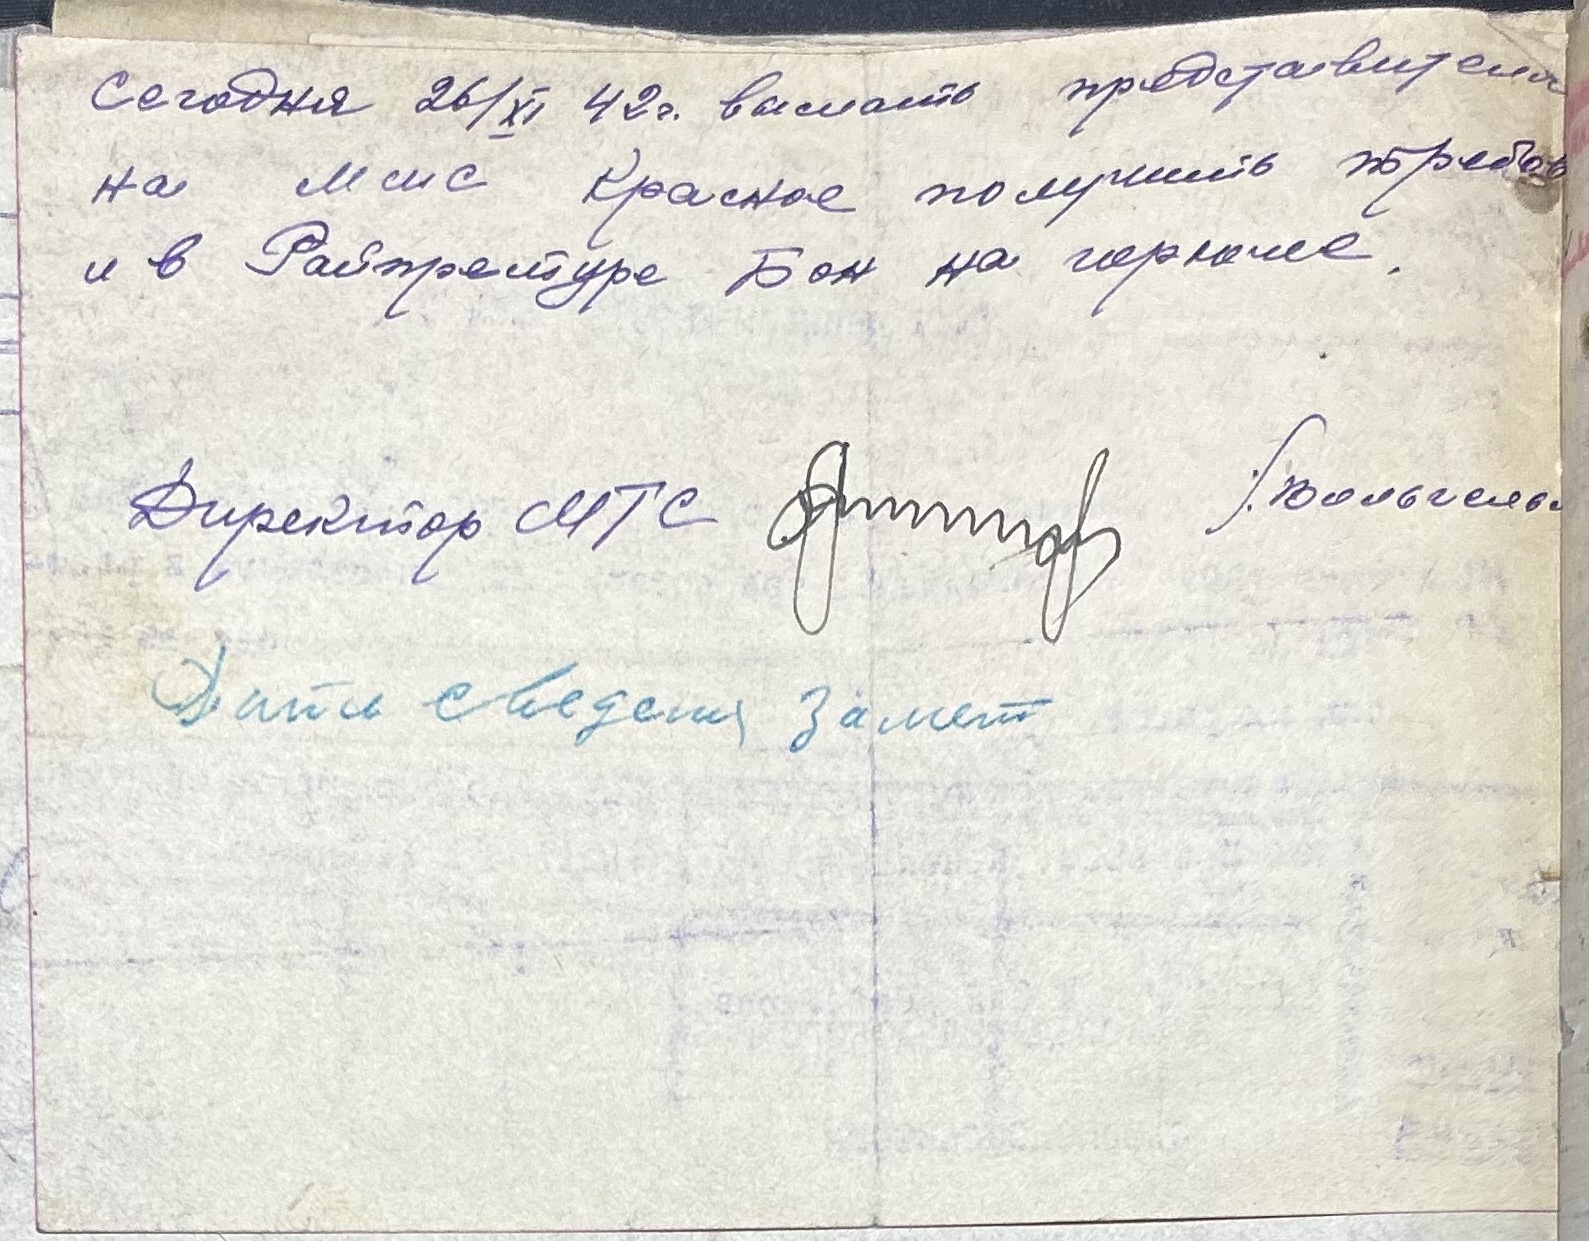 Сегодня 26/XI 42г. выслать представителя
на ММС Красное получить требов
и в Райпрефтуре Бон на горючее.
Директор МТС
Дати сведения